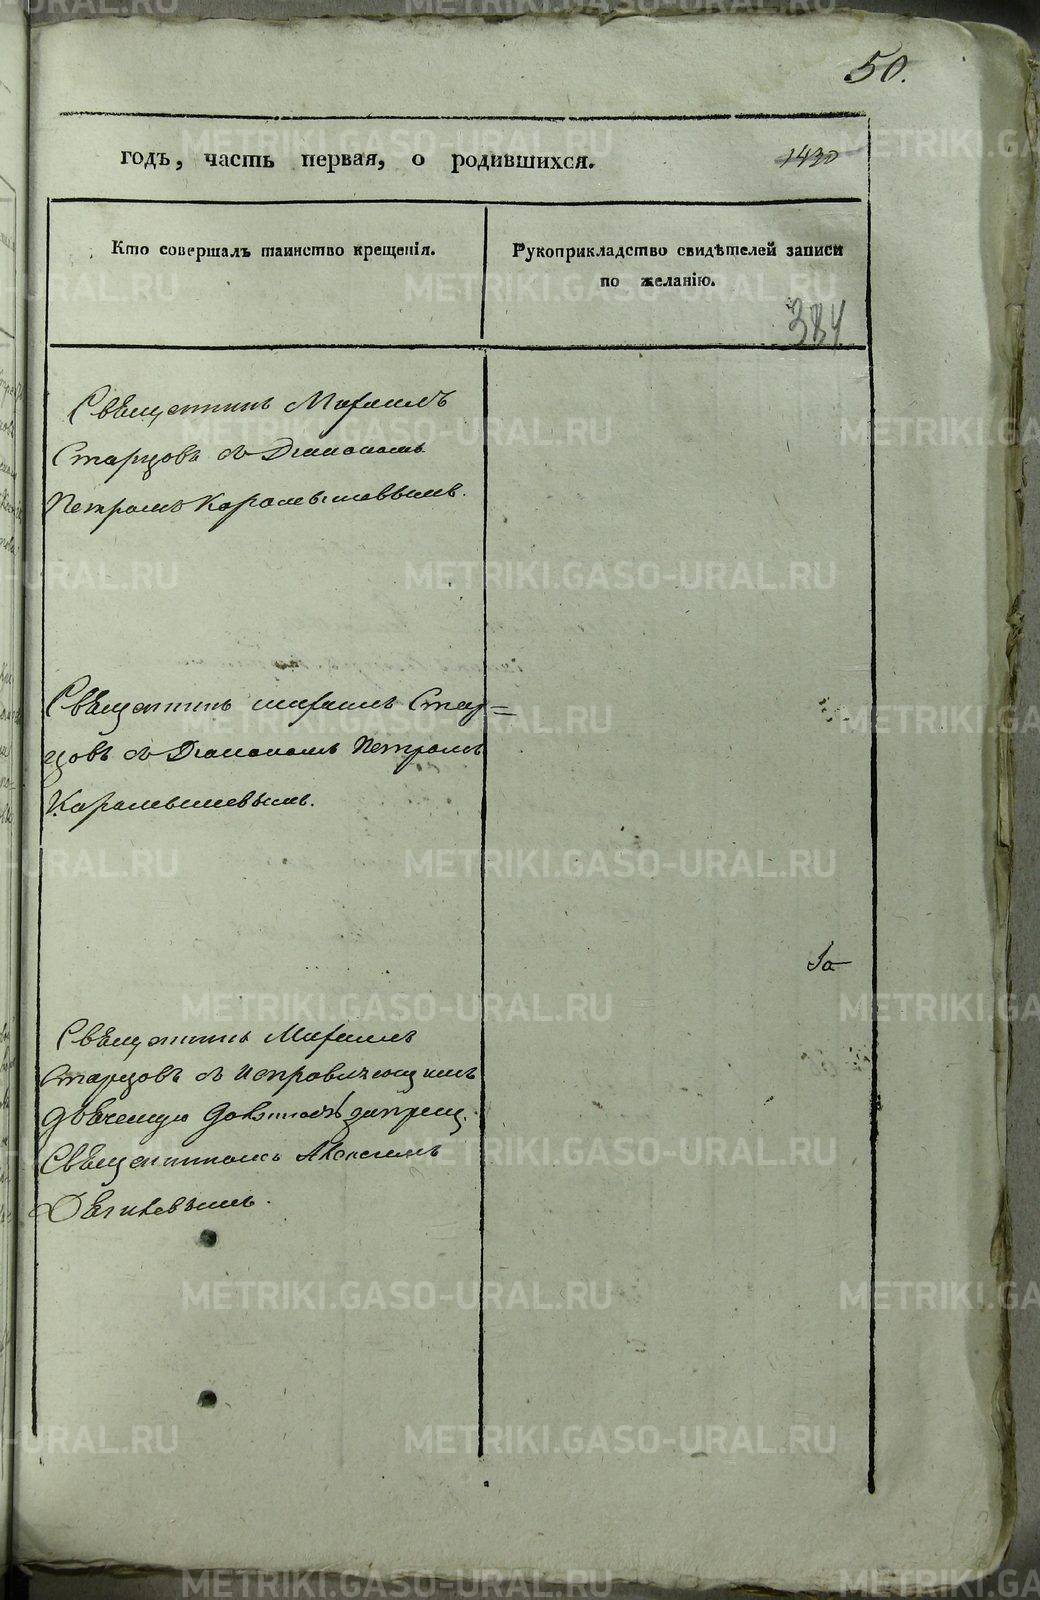 50.
годъ, часть первая, о родившихся.
1430
Кто совершалъ таинство крещенія.
Рукоприкладство свидѣтелей записи
по желанію.
384
Священникъ Михаилъ
Старцовъ съ Діакономъ
Петромъ Карамышевымъ.
Священникъ Михаилъ Стар=
цовъ съ Діакономъ Петромъ
Карамышевымъ.
Священникъ Михаилъ
Старцовъ съ исправляющимъ
должность запрещ.
Священникомъ Алексіемъ
METRIKI.GASO-URAL.RU